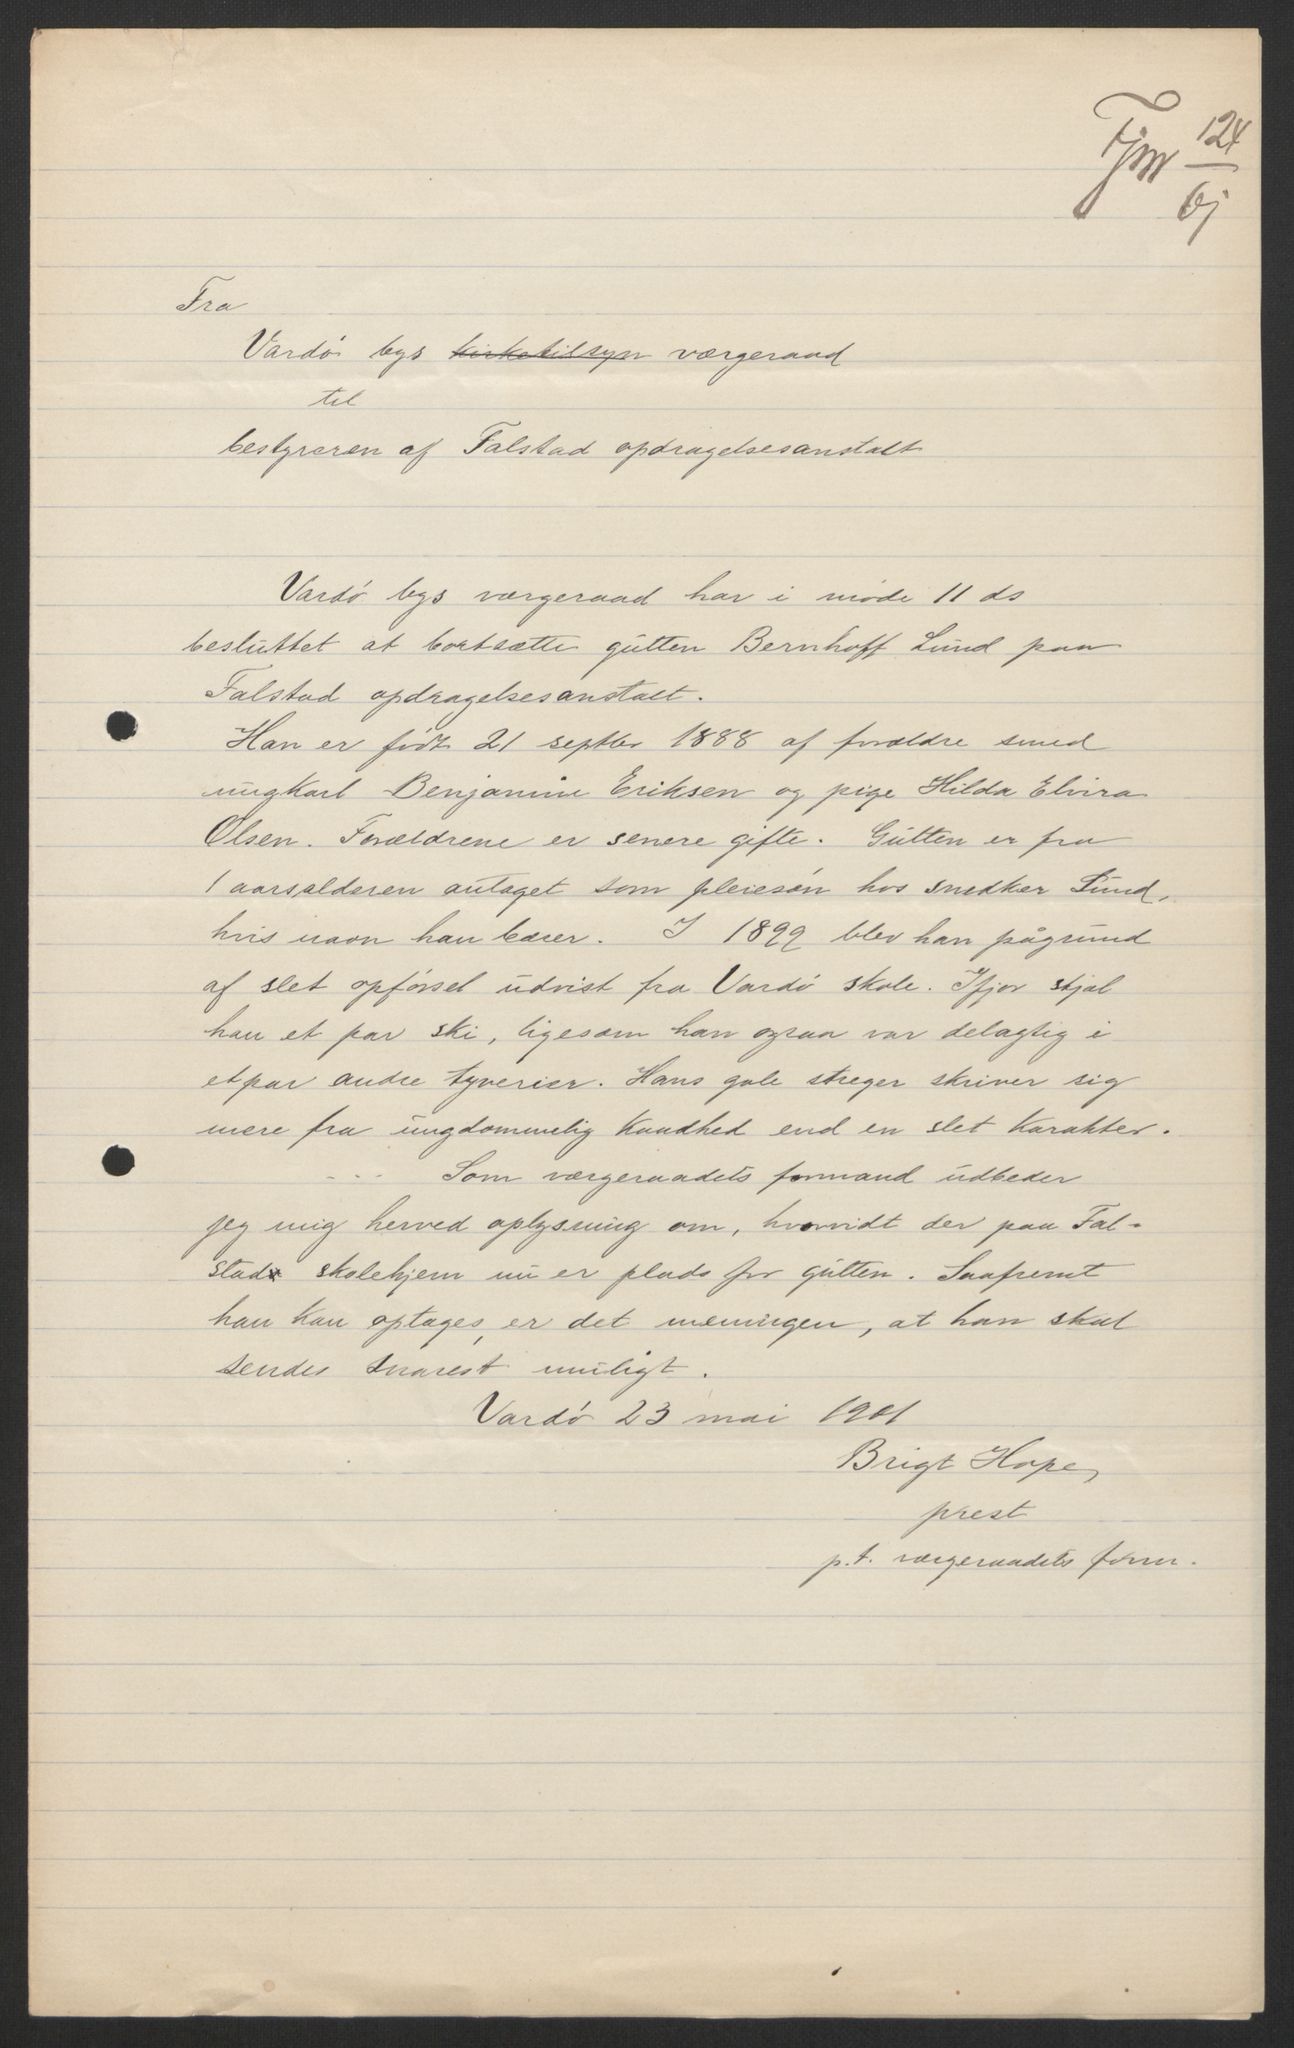 124
Fra
Vardö bys kirketilsyn værgeraad
til
bestyreren af Falstad opdragelsesanstalt
Vardö bys værgeraad har i möde 11 ds
besluttet at bortsætte gutten Bernhoff Lund paa
Falstad opdragelsesanstalt.
Han er födt 21 septbr 1888 af forældre smed
ungkarl Benjamin Eriksen og pige Hilda Elvira
Olsen. Forældrene er senere gifte. Gutten er fra
1 aarsalderen antaget som pleiesön hos snedker Lund,
hvis navn han bærer. I 1899 blev han pågrund
af slet opförsel udvist fra Vardö skole. Ifjor stjal
han et par ski, ligesom han ogsaa var delagtig i
etpar andre tyverier. Hans gale streger skriver sig
mere fra ungdommelig kaadhed end en slet karakter.
Som værgeraadets formand udbeder
jeg mig herved oplysning om, hvorvidt der paa Fal-
stad skolehjem nu er plads for gutten. Saafremt
han kan optages, er det meningen, at han skal
sendes snarest muligt.
Vardö 23 mai 1901
Brigt Hope,
prest
p.t. værgeraadets form.